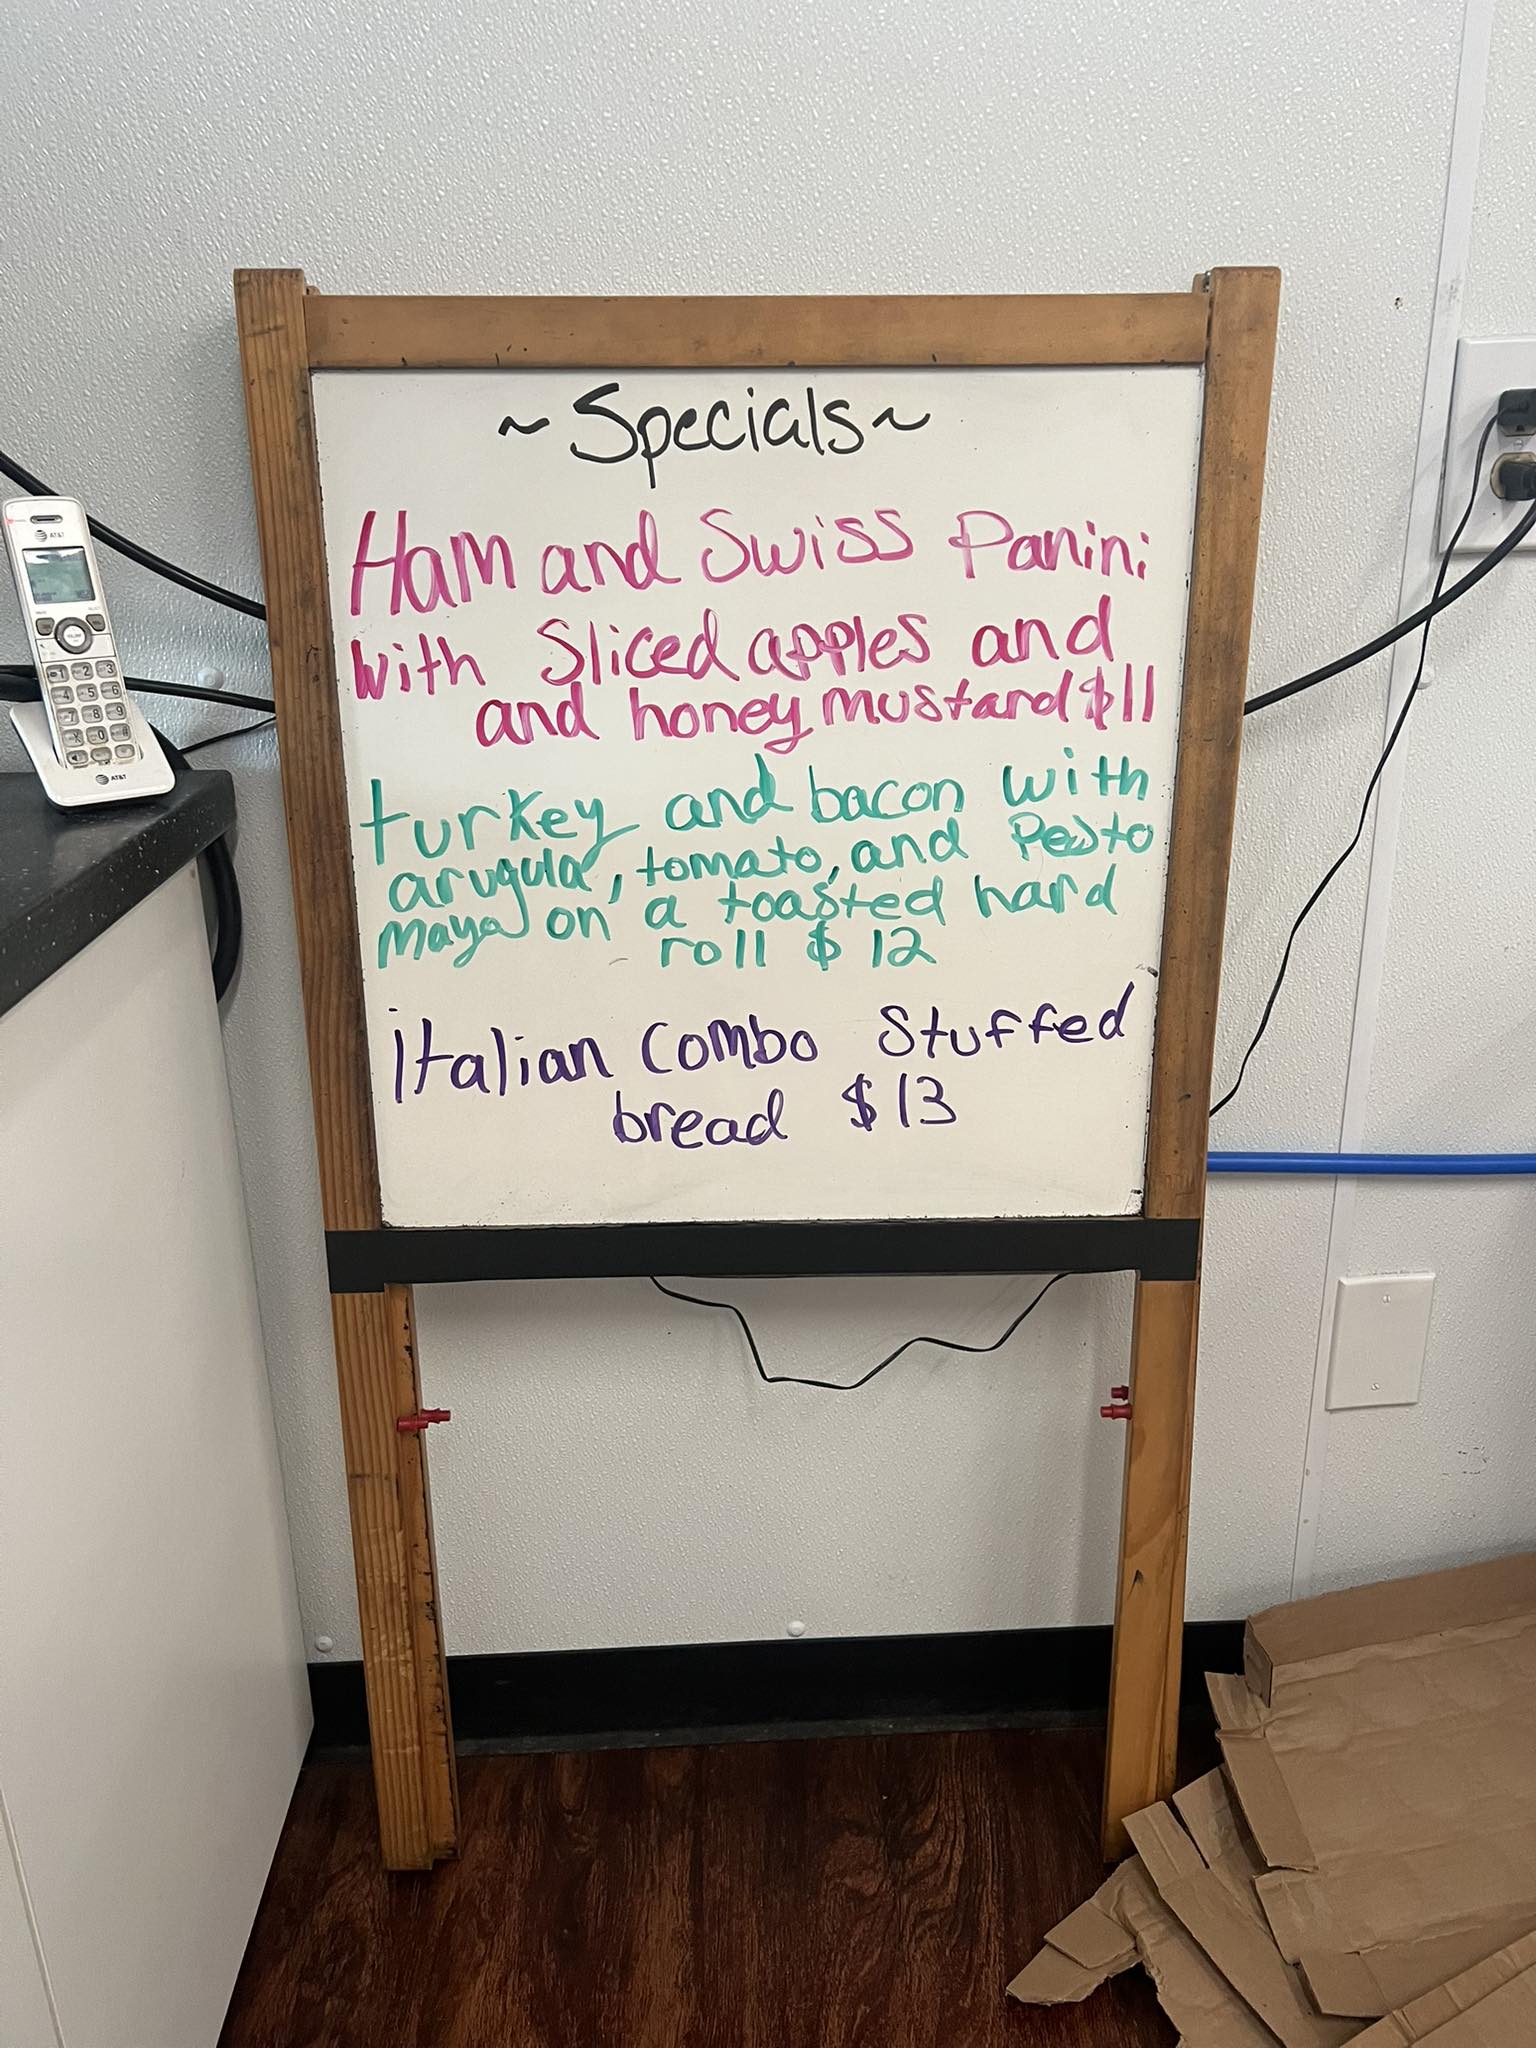 ~Specials~
Ham and Swiss Panini
with Sliced apples and
and honey mustard $11
turkey and bacon with
arugula, tomato, and Pesto
mayo on a toasted hard
roll $12
italian combo stuffed
bread $13
AT&T
1 2 3
4 5 6
7 8 9
0
AT&T